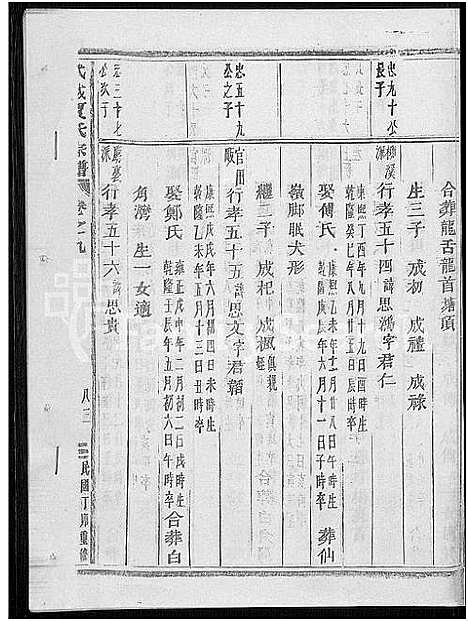 合葬龍舌龍首塘項
生三子 成初 成禮 成祿
忠九十公
長子
行孝五十四諱思鴻字君仁
康熙丁酉年九月十九日酉時生
乾隆癸巳年八月廿五日辰時卒
娶傅氏
康熙乙未年十二月廿八日辰時生
乾隆庚辰年六月十一日子時卒
葬仙
嶺脚眠犬形
繼二子 成杞 成楓
忠五十九
公之子
官田
行孝五十五諱思文字君
康熙戊戌年六月廿四日未時生
乾隆乙未年十月十三日丑時卒
娶鄭氏
雍正戊申年二月初二日戌時生
乾隆壬辰年五月初六日午時卒
合葬白
角灣 生一女適
忠三十七
公次子
派
行孝五十六諱思貴
武城夏氏宗譜 卷之九
八三
民國丁卯重修